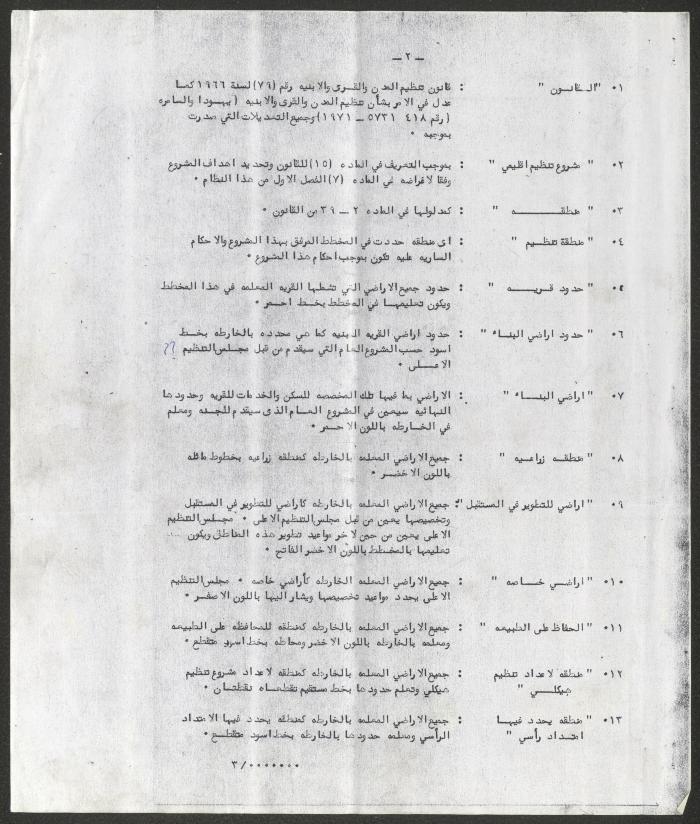 — ٢ —
٠١ "القانون" : قانون تنظيم المدن والقرى والابنيه رقم (٧٩) لسنة ١٩٦٦ كما
عدل في الامر بشأن تنظيم المدن والقرى والابنيه (يهودا والسامره
(رقم ٤١٨ ٥٧٣١ – ١٩٧١) وجميع التعديلات التي صدرت
بموجبه ٠
٠٢ " مشروع تنظيم اقليمي " : بموجب التعريف في الماده (١٥) للقانون وتحديد اهداف المشروع
وفقا لاغراضه في الماده (٧) الفصل الاول من هذا النظام ٠
٠٣ " منطقه " : كمدلولها في الماده ٢ – ٣٩ من القانون ٠
٠٤ " منطقة تنظيم " : اى منطقه حددت في المخطط المرفق بهذا المشروع والاحكام
الساريه عليه تكون بموجب احكام هذا المشروع ٠
٠٥ " حدود قريه " : حدود جميع الاراضي التي تشملها القريه المعلمه في هذا المخطط
ويكون تعليمها في المخطط بخط احمر ٠
٠٦ " حدود اراضي البناء " : حدود اراضي القريه المبنيه كما هي محدده بالخارطه بخط
اسود حسب المشروع العام التي سيقدم من قبل مجلس التنظيم ??
الاعلى ٠
٠٧ " اراضي البناء " : الاراضي بما فيها تلك المخصصه للسكن والخدمات للقريه وحدودها
النهائيه سيعين في الشروع العام الذى سيقدم للجنه ومعلم
في الخارطه باللون الاحمر ٠
٠٨ " منطقه زراعيه " : جميع الاراضي المعلمه بالخارطه كمنطقه زراعيه بخطوط مائله
باللون الاخضر ٠
٠٩ " اراضي للتطوير في المستقبل ": جميع الاراضي المعلمه بالخارطه كاراضي للتطوير في المستقبل
وتخصيصها يعين من قبل مجلس التنظيم الاعلى ٠ مجلس التنظيم
الاعلى يعين من حين لاخر مواعيد تطوير هذه المناطق ويكون
تعليمها بالمخطط باللون الاخضر الفاتح ٠
٠١٠ " اراضي خاصه " : جميع الاراضي المعلمه الخارطه كأراضي خاصه ٠ مجلس التنظيم
الاعلى يحدد مواعيد تخصيصها ويشار اليها باللون الاصفر ٠
٠١١ " الحفاظ على الطبيعه " : جميع الاراضي المعلمه بالخارطه كمنطقه للمحافظه على الطبيعه
ومعلمه بالخارطه باللون الاخضر ومحاطه بخط اسود متقطع ٠
٠١٢ " منطقه لاعداد تنظيم : جميع الاراضي المعلمه بالخارطه كمنطقه لاعداد مشروع تنظيم
هيكلي " هيكلي وتعلم حدودها بخط مستقيم تقطعاه نقطتان ٠
٠١٣ " منطقه يحدد فيها : جميع الاراضي المعلمه بالخارطه كمنطقه يحدد فيها الامتداد
امتداد رأسي " الرأسي ومعلمه حدودها بالخارطه بخط اسود متقطع ٠
٣/٠٠٠٠٠٠٠